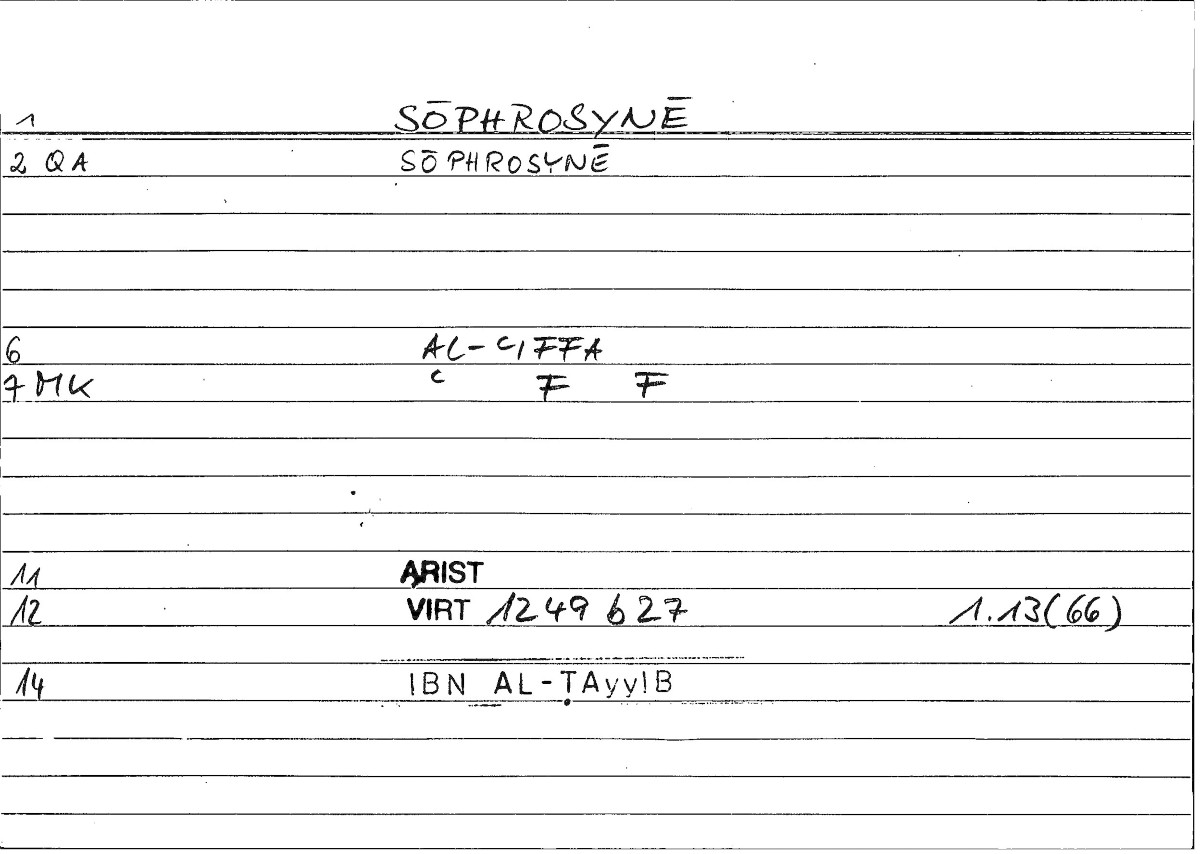 1 SŌPHROSYNĒ
2 QA SŌPHROSYNĒ
6 AL-ʿIFFA
7 MK ʿ F F
11 ARIST
12 VIRT 1249 b 27 1.13(66)
14 IBN AL-ṬAyyIB